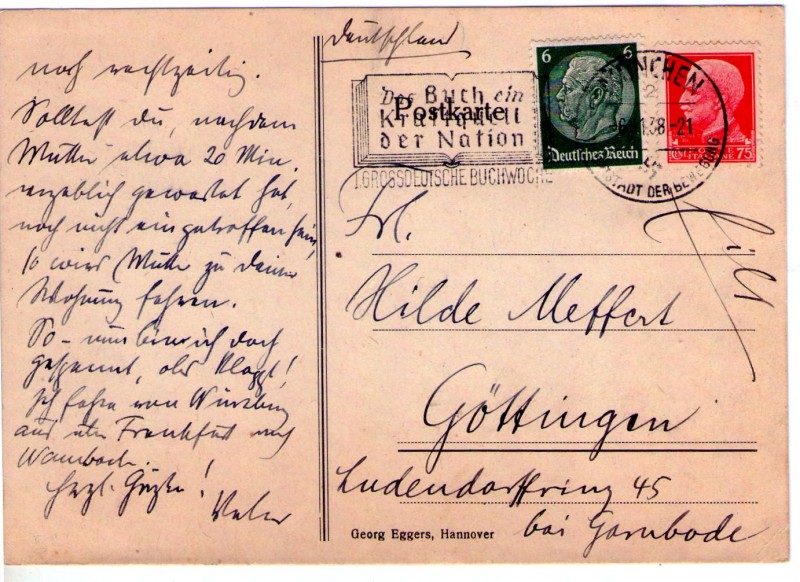 noch rechtzeitig.
Solltest du, nachdem
Mutter etwa 20 Min.
vergeblich gewartet hat,
noch nicht eingetroffen sein,
so wird Mutter zu deiner
Wohnung fahren.
So – nun bin ich doch
gespannt, ob's klappt!
Ich fahre von Würzburg
aus über Frankfurt nach
Wambach.
Herzl. Grüße!
Vater
Deutschland
Postkarte
Das Buch ein
Kraftquell
der Nation
1. GROSSDEUTSCHE BUCHWOCHE
6 6
Deutsches Reich
MÜNCHEN
2
38-21
STADT DER BEWEGUNG
75
Frl.
Hilde Meffert
Göttingen
Ludendorffring 45
bei Garnbode
Georg Eggers, Hannover